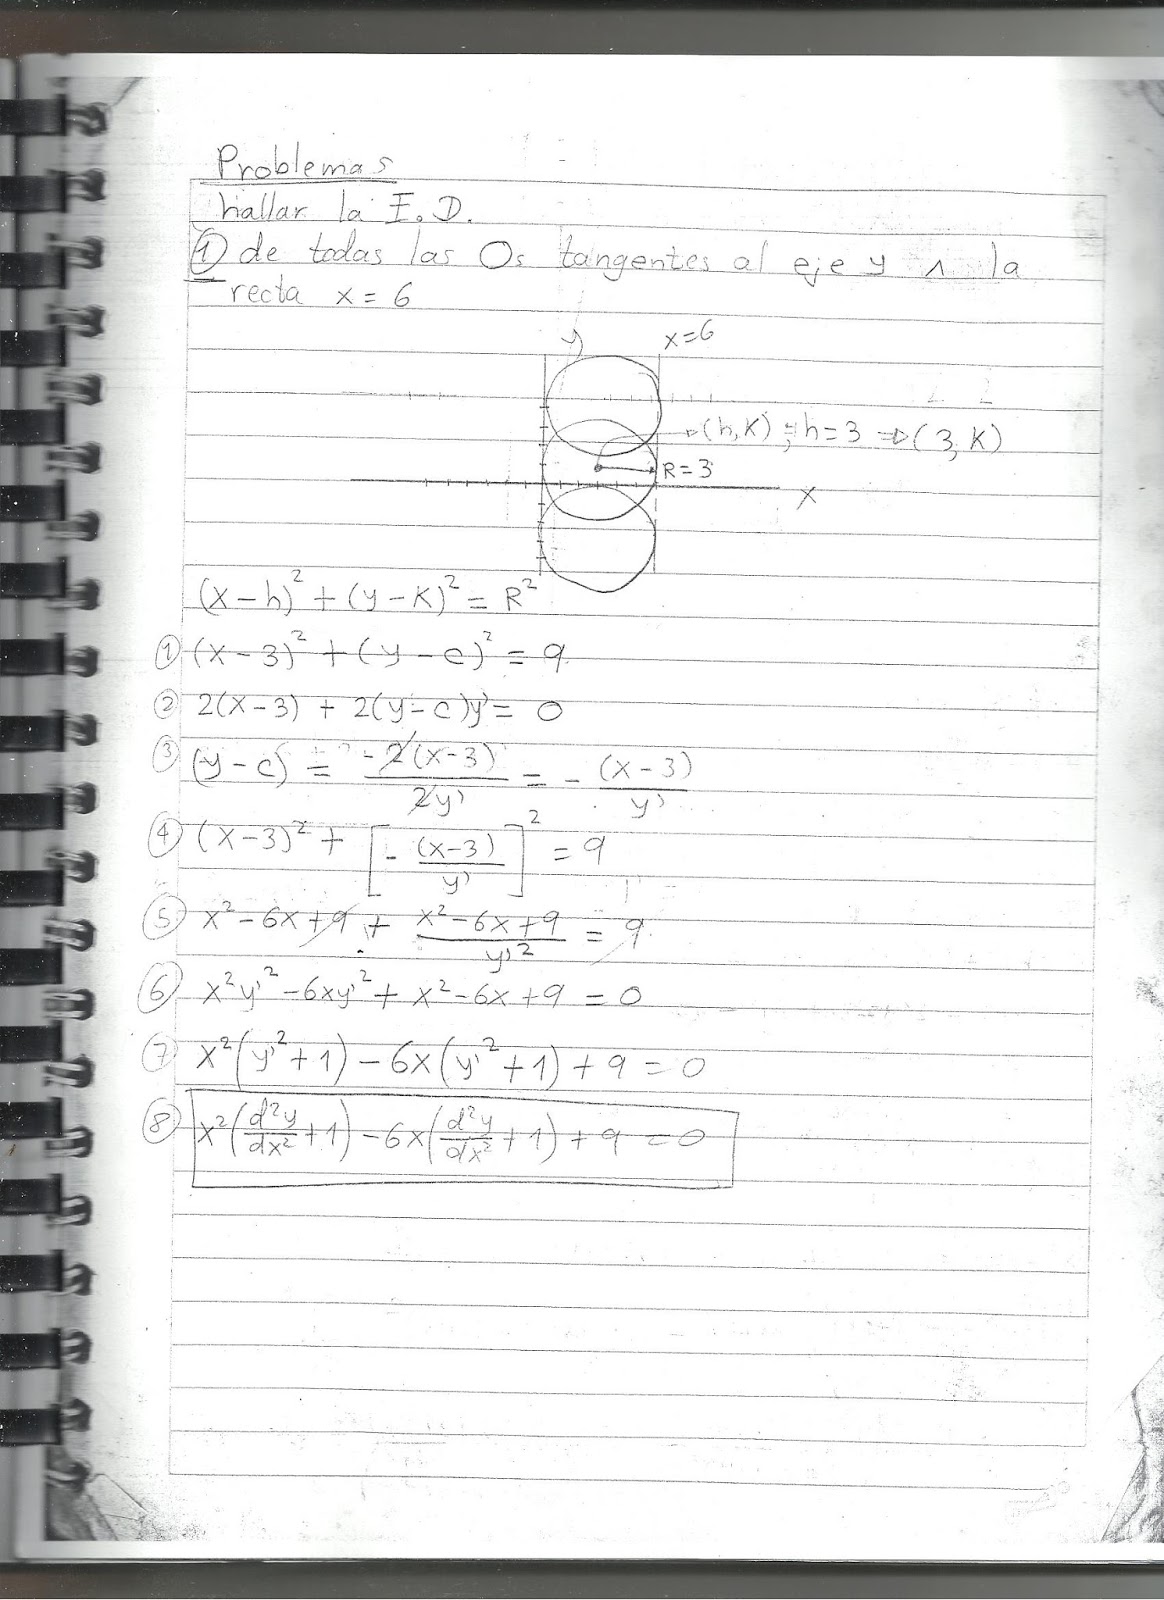 Problemas
hallar la E.D.
① de todas las Os tangentes al eje y ∧ la
recta x = 6
y
x=6
(h,K) ; h=3 → (3,K)
R=3
X
(x-h)² + (y-K)² = R²
① (x-3)² + (y-c)² = 9
② 2(x-3) + 2(y-c)y' = 0
③ (y-c) = -2(x-3)/2y' = -(x-3)/y'
④ (x-3)² + [-(x-3)/y']² = 9
⑤ x²-6x+9 + x²-6x+9/y'² = 9
⑥ x²y'²-6xy'²+x²-6x+9 = 0
⑦ x²(y'²+1)-6x(y'²+1)+9 = 0
⑧ x²(d²y/dx²+1)-6x(d²y/dx²+1)+9 = 0